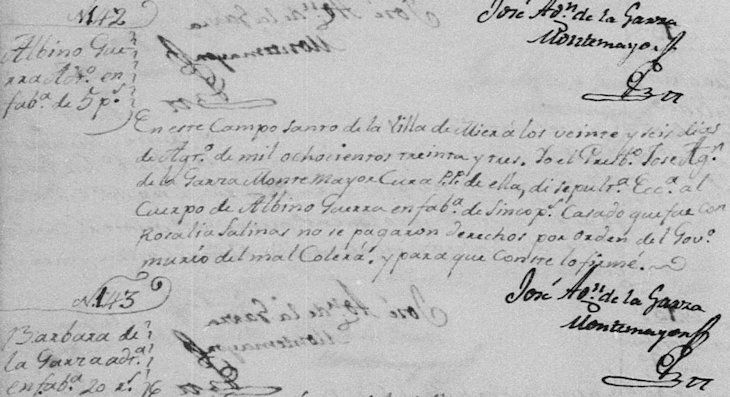 N. 142
Albino Gue-
rra Ad.º en
fab.ª de 5 p.s
José Ag.n de la Garza
Montemayor
En este Campo Santo de la Villa de Mier á los veinte y seis dias
de Agt.º de mil ochocientos treinta y tres. Yo el Presb.º José Ag.n
de la Garza Montemayor Cura P.P. de ella, di sepult.ª Ecc.ª al
Cuerpo de Albino Guerra en fab.ª de Sinco p.s Casado que fue con
Rosalia Salinas no se pagaron derechos por orden del Gov.º
murio del mal Colerá, y para que Conste lo firmé.
José Ag.n de la Garza
Montemayor
N. 143
Barbara de
la Garza ad.ª
en fab.ª 20 r.s